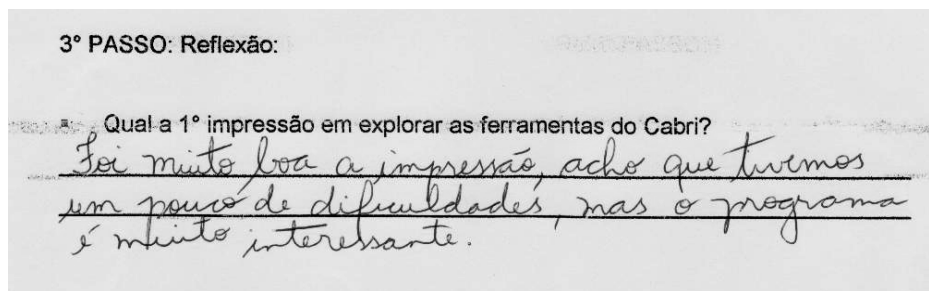 3° PASSO: Reflexão:
Qual a 1° impressão em explorar as ferramentas do Cabri?
Foi muito boa a impressão, acho que tivemos
um pouco de dificuldades, mas o programa
é muito interessante.